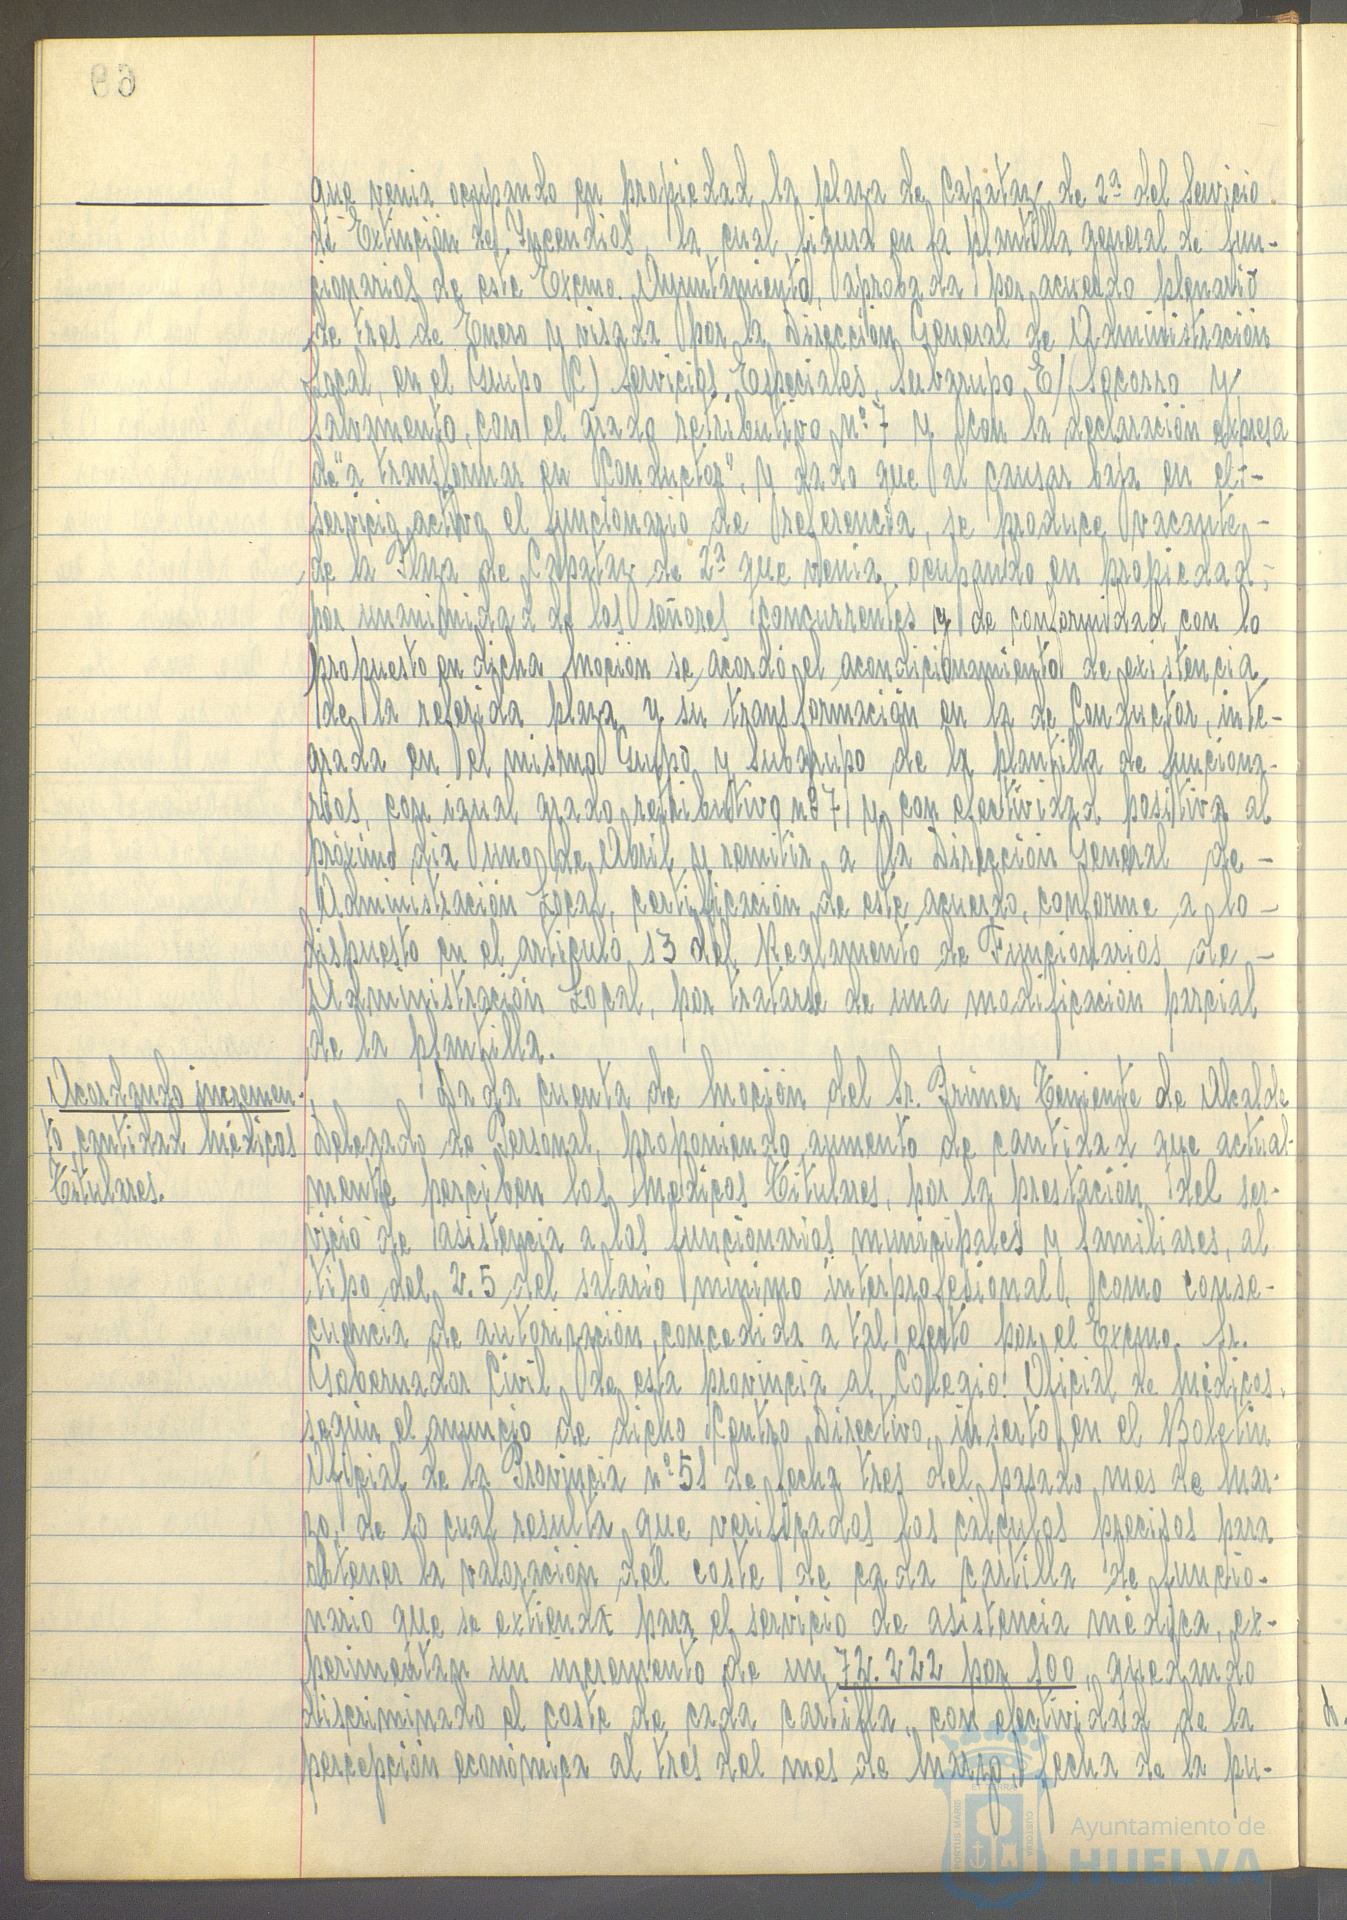 69
que venia ocupando en propiedad la plaza de Capataz de 2ª del Servicio
de Extinción de Incendios, la cual figura en la plantilla general de fun-
cionarios de este Excmo. Ayuntamiento, aprobada por acuerdo plenario
de tres de Enero y visada por la Dirección General de Administración
Local, en el Grupo C) Servicios Especiales, Subgrupo E/ Socorro y
salvamento, con el grado retributivo nº 7 y con la declaración expresa
de "a transformar en Conductor", y dado que al causar baja en el -
servicio activo el funcionario de referencia, se produce vacante -
de la Plaza de Capataz de 2ª que venia ocupando en propiedad,
por unanimidad de los señores concurrentes y de conformidad con lo
propuesto en dicha moción se acordó el acondicionamiento de existencia
de la referida plaza y su transformación en la de Conductor, inte-
grada en el mismo Grupo y Subgrupo de la plantilla de funciona-
rios, con igual grado retributivo nº 7, y con efectividad positiva al
próximo dia uno de Abril y remitir a la Dirección General de -
Administración Local, certificación de este acuerdo, conforme a lo -
dispuesto en el articulo 13 del Reglamento de Funcionarios de -
Administración Local, por tratarse de una modificación parcial
de la plantilla.
Acordando incremen-
to cantidad Médicos
Titulares.
Dada cuenta de moción del Sr. Primer Teniente de Alcalde
Delegado de Personal, proponiendo aumento de cantidad que actual-
mente perciben los Médicos Titulares, por la prestación del ser-
vicio de asistencia a los funcionarios municipales y familiares, al
tipo del 2.5 del salario minimo interprofesional, como conse-
cuencia de autorización concedida a tal efecto por el Excmo. Sr.
Gobernador Civil de esta provincia al Colegio Oficial de Médicos,
según el anuncio de dicho Centro Directivo, inserto en el Boletin
Oficial de la Provincia nº 51 de fecha tres del pasado mes de Mar-
zo, de lo cual resulta que verificados los cálculos precisos para
obtener la valoración del coste de cada cartilla de funcio-
nario que se extienda para el servicio de asistencia médica, ex-
perimentan un incremento de un 72.222 por 100, quedando
discriminado el coste de cada cartilla, con efectividad de la
percepción económica al tres del mes de Marzo, fecha de la pu-
PORTUS MARIS
ET TERRAE
CUSTODIA
Ayuntamiento de
HUELVA